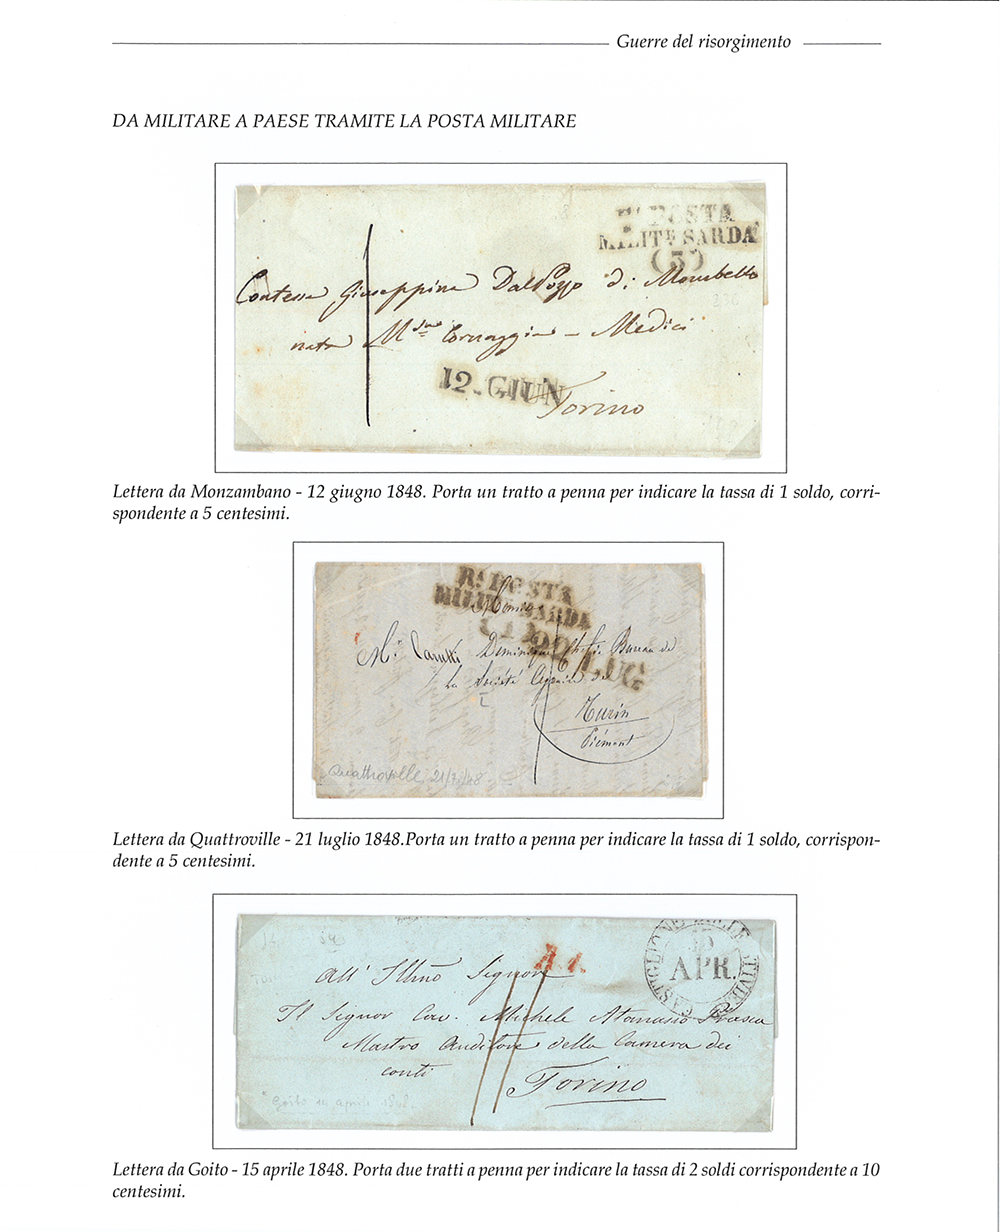 Guerre del risorgimento
DA MILITARE A PAESE TRAMITE LA POSTA MILITARE
Rª POSTA
MILITᴱ SARDA
(3)
Contessa Giuseppina Dal Pozzo di Mombello
nata M.sa Cornaggia - Medici
12.GIUN
Torino
Lettera da Monzambano - 12 giugno 1848. Porta un tratto a penna per indicare la tassa di 1 soldo, corri-
spondente a 5 centesimi.
Rª POSTA
MILITᴱ SARDA
LUG
Mr Dominique Bureau de
la Société Agricole de
Turin
Piémont
Quattroville 21/7/48
Lettera da Quattroville - 21 luglio 1848.Porta un tratto a penna per indicare la tassa di 1 soldo, corrispon-
dente a 5 centesimi.
CASTIGLIONE DELLE STIVIERE
15
APR.
A.1.
All' Illmo Signore
Il Signor Cav. Michele Atanasio
Mastro Auditore della Camera dei
conti
Torino
Goito 14 aprile 1848.
Lettera da Goito - 15 aprile 1848. Porta due tratti a penna per indicare la tassa di 2 soldi corrispondente a 10
centesimi.